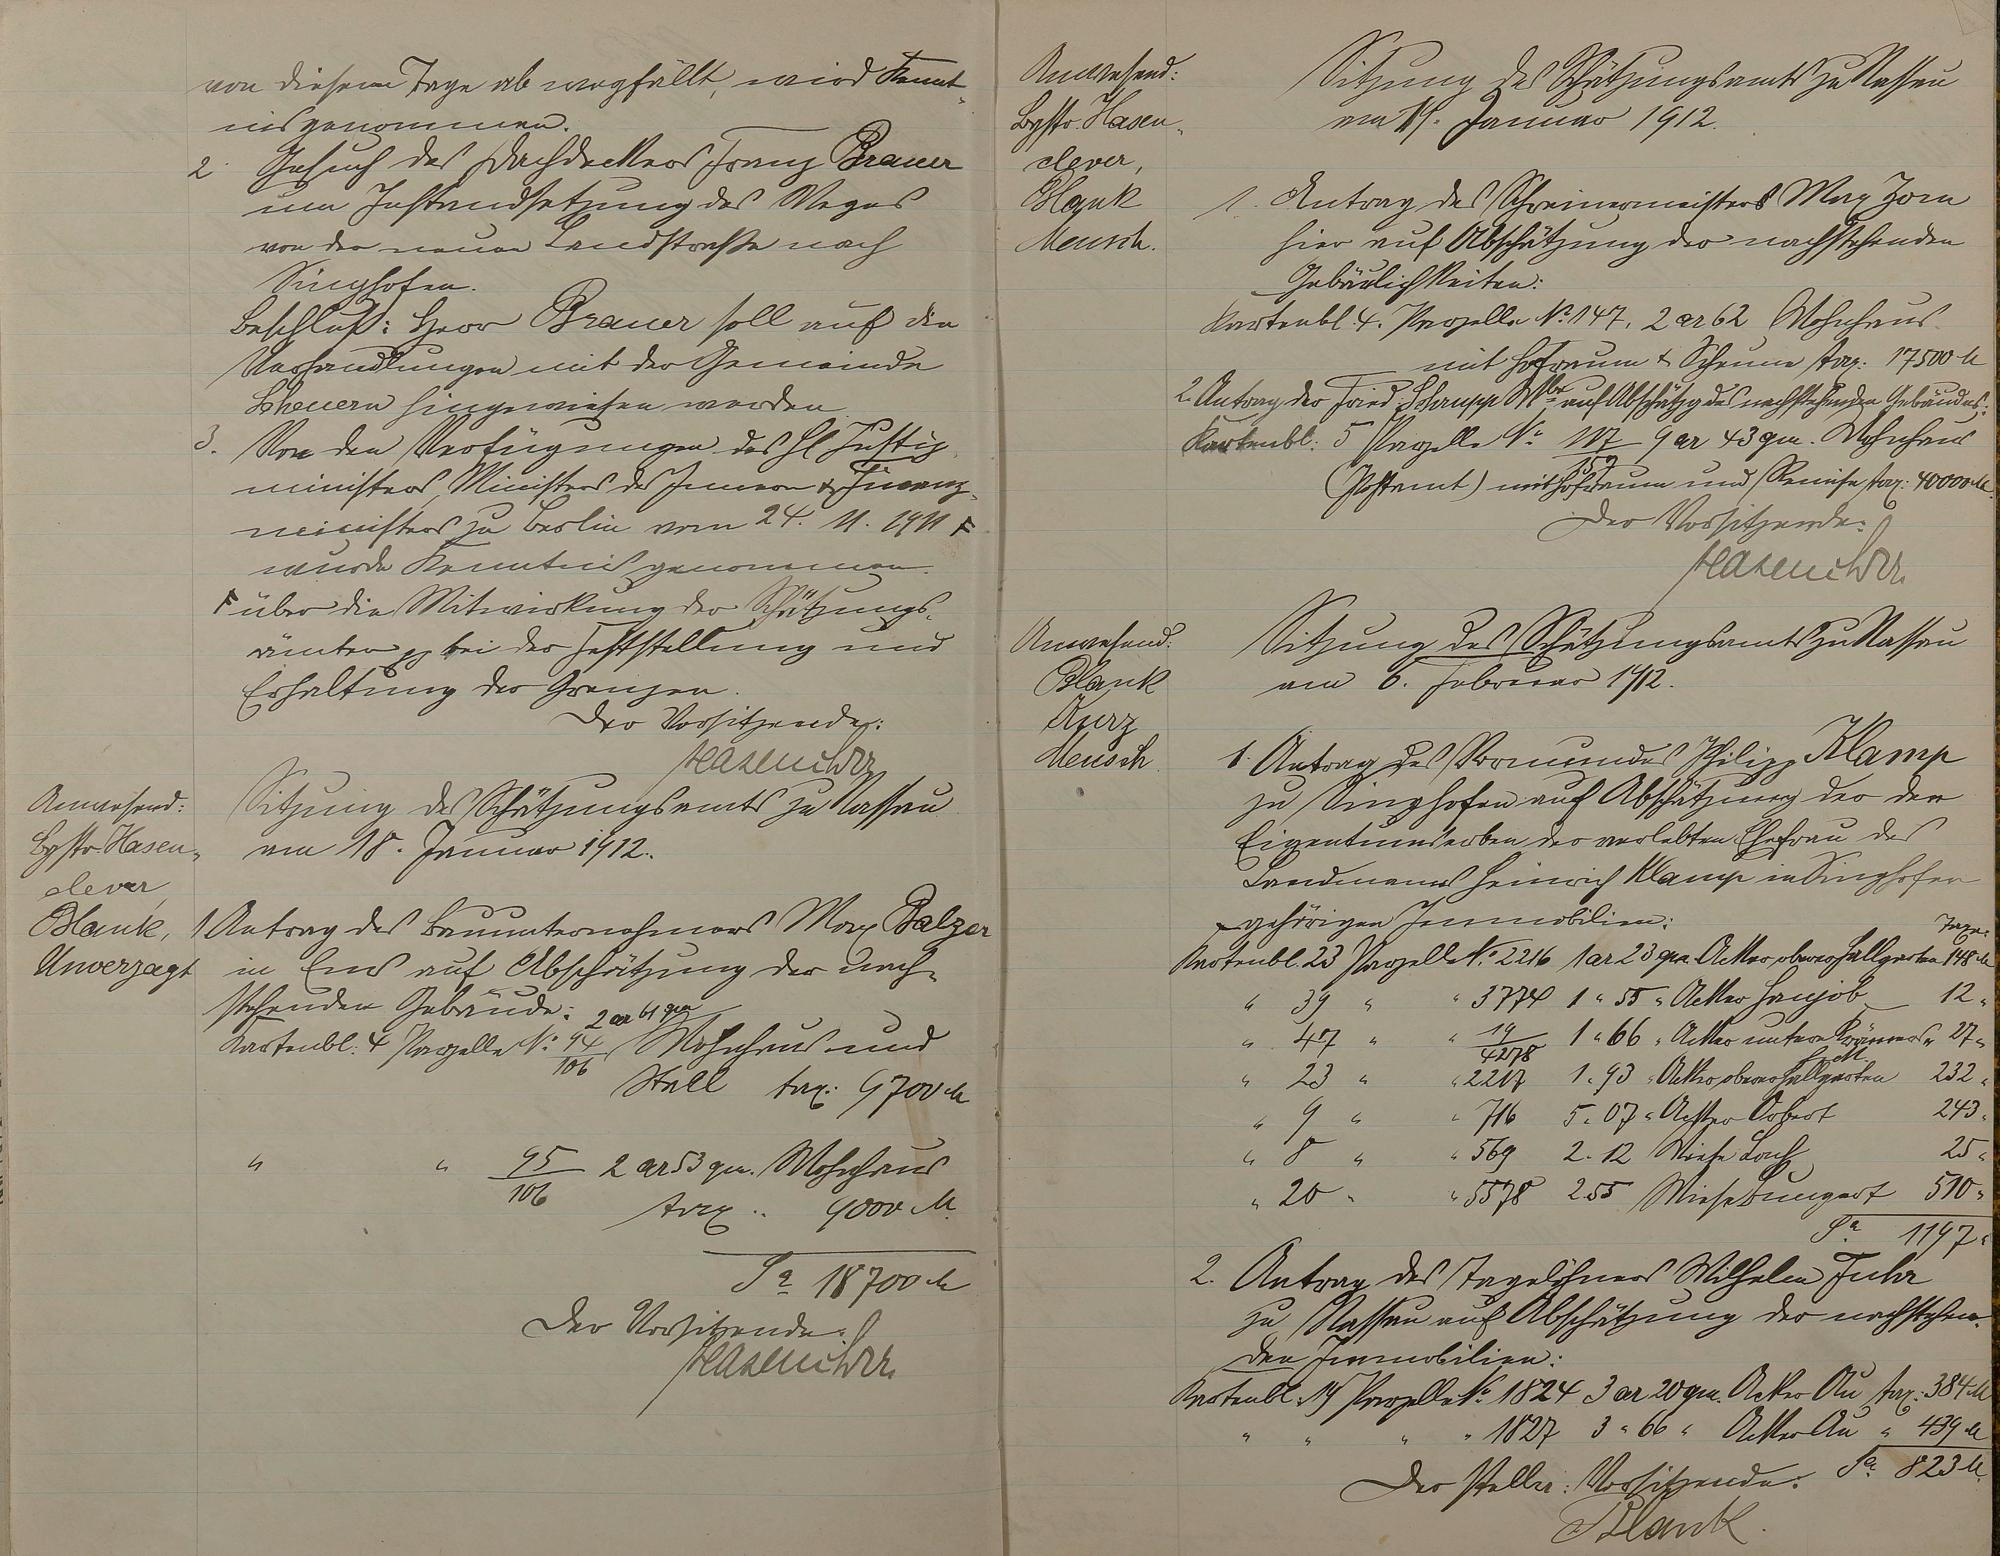 von diesem Tage ab wegfällt, wird Kennt-
nis genommen.
2. Gesuch des Dachdeckers Franz Brauer
um Instandsetzung des Weges
von der neuen Landstraße nach
Singhofen.
Beschluß: Herr Brauer soll auf die
Verhandlungen mit der Gemeinde
Scheuern hingewiesen werden.
3. Von den Verfügungen des H. Justiz-
ministers, Ministers des Innern & Finanz-
ministers zu Berlin vom 24. 11. 1911 F
wurde Kenntnis genommen.
F über die Mitwirkung der Schätzungs-
ämter pp bei der Feststellung und
Erhaltung der Grenzen.
Der Vorsitzende:
Hasenclever
Anwesend:
Bgstr. Hasen-
clever,
Blank,
Unverzagt
Sitzung des Schätzungsamts zu Nassau
am 18. Januar 1912.
1 Antrag des Bauunternehmers Max Balzer
in Ems auf Abschätzung der nach-
stehenden Gebäude:
2 ar 61 qm
Kartenbl: 4 Parzelle No: 94/106 Wohnhaus und
Stall tax: 9700 M
" " 95/106 2 ar 53 qm. Wohnhaus
tax.. 9000 M.
Sa 18700 M
Der Vorsitzende:
Hasenclever
Anwesend:
Bgstr. Hasen-
clever,
Blank
Mensch.
Sitzung des Schätzungsamts zu Nassau
am 19. Januar 1912.
1. Antrag des Schreinermeisters Max Zorn
hier auf Abschätzung der nachstehenden
Gebäulichkeiten:
Kartenbl. 4. Parzelle No. 147, 2 ar 62 Wohnhaus
mit Hofraum & Scheune tax: 17500 M
2. Antrag der Fried. Schrupp Wbe auf Abschätzg des nachstehenden Gebäudes:
Kartenbl: 5 Parzelle No: 107/159 9 ar 43 qm. Wohnhaus
(Postamt) mit Hofraum und Remise tax: 40000 M.
Der Vorsitzende:
Hasenclever
Anwesend:
Blank
Kurz
Mensch
Sitzung des Schätzungsamts zu Nassau
am 6. Februar 1912.
1. Antrag des Vormundes Philipp Klamp
zu Singhofen auf Abschätzung der den
Eigentumserben der verlebten Ehefrau des
Landmanns Heinrich Klamp in Singhofen
gehörigen Immobilien:
Taxe:
Kartenbl. 23 Parzelle No. 2216 1 ar 23 qm. Acker oberer Hellgarten 148 M
" 39 " " 3774 1 " 55 " Acker 12 "
" 47 " " 19/4278 1 " 66 " Acker untere " 27 "
" 23 " " 2217 1 " 93 " Acker oberer Hellgarten 232 "
" 9 " " 716 5 " 07 " Acker 243 "
" 8 " " 569 2 " 12 Wiese Loch 25 "
" 20 " " 5578 2 55 Wiese Bungert 510 "
Sa 1197 "
2. Antrag des Tagelöhners Wilhelm Fuhr
zu Nassau auf Abschätzung der nachstehen-
den Immobilien:
Kartenbl. 14 Parzelle No. 1824 3 ar 20 qm. Acker Au tax: 384 M
" " " " 1827 3 " 66 " Acker Au " 439 M
Sa. 823 M.
Der stellv: Vorsitzende:
Blank.